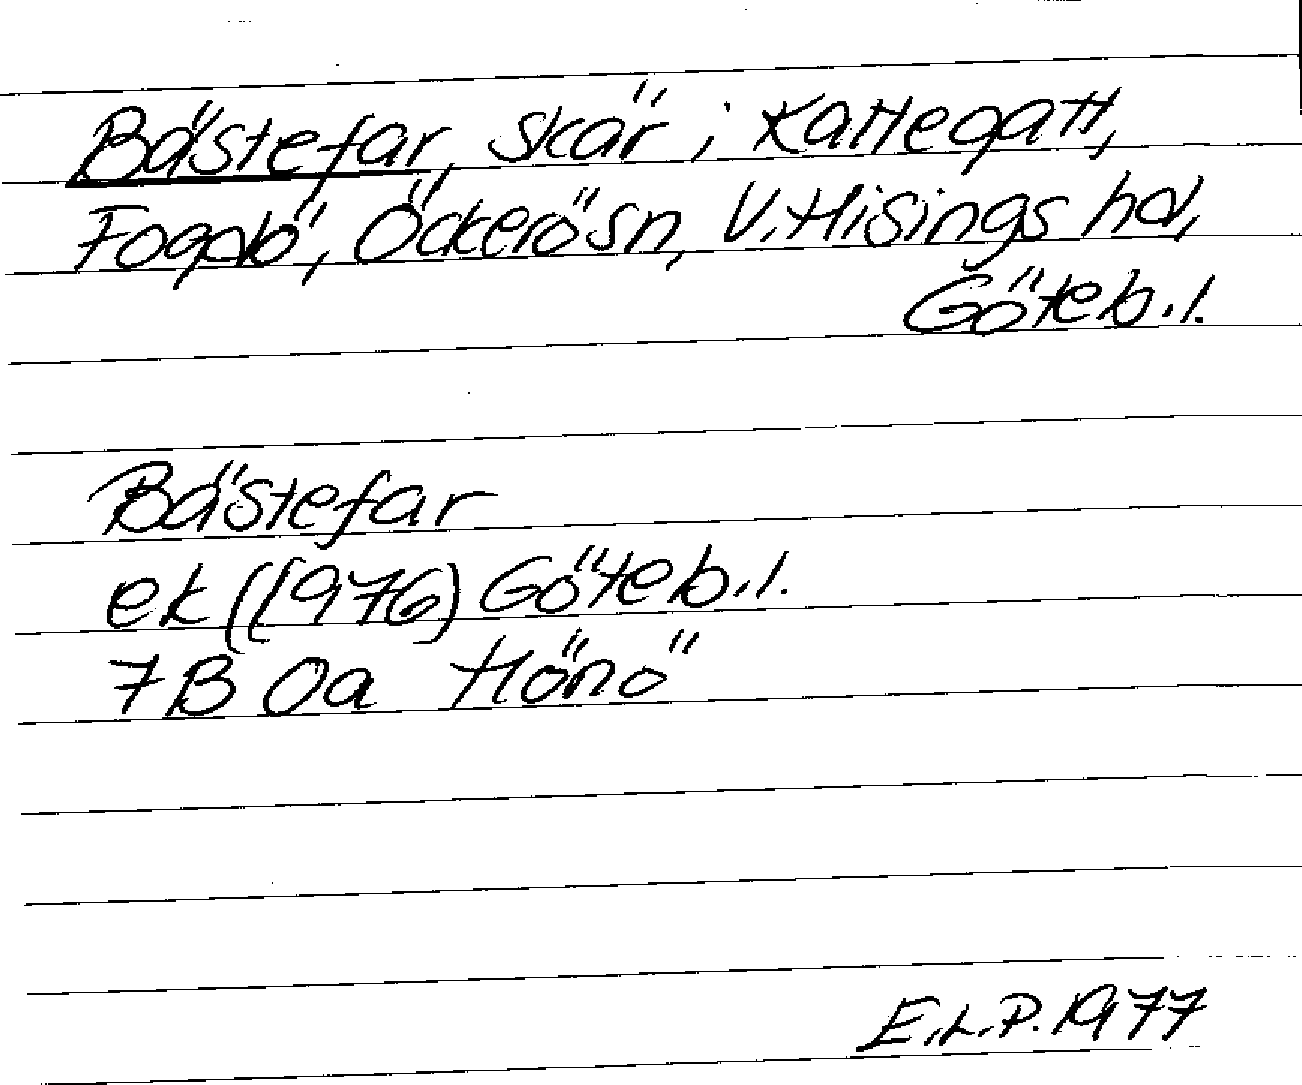 Bästefar, skär i Kattegatt,
Fogdö, Öckerö sn, V. Hisings hd,
Göteb.l.
Bästefar
ek ([976) Göteb.l.
7B 0a Hönö
E.L.P. 1977